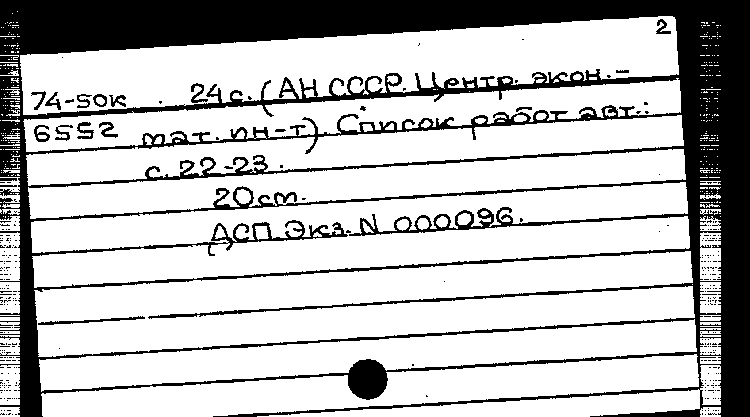 2
74-50к 24 с. (АН СССР. Центр. экон.-
6552 мат. ин-т). Список работ авт.:
с. 22-23.
20 см.
ДСП. Экз. N 000096.